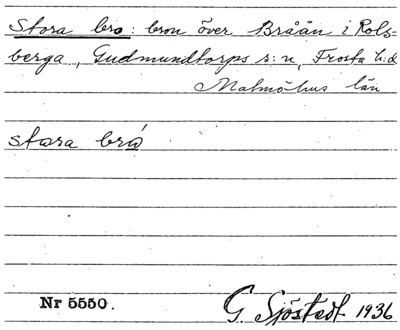 Stora bro: bron över Bråån i Rols-
berga, Gudmundtorps s:n, Frosta h:d
Malmöhus län
stora bro
Nr 5550.
G. Sjöstedt 1936